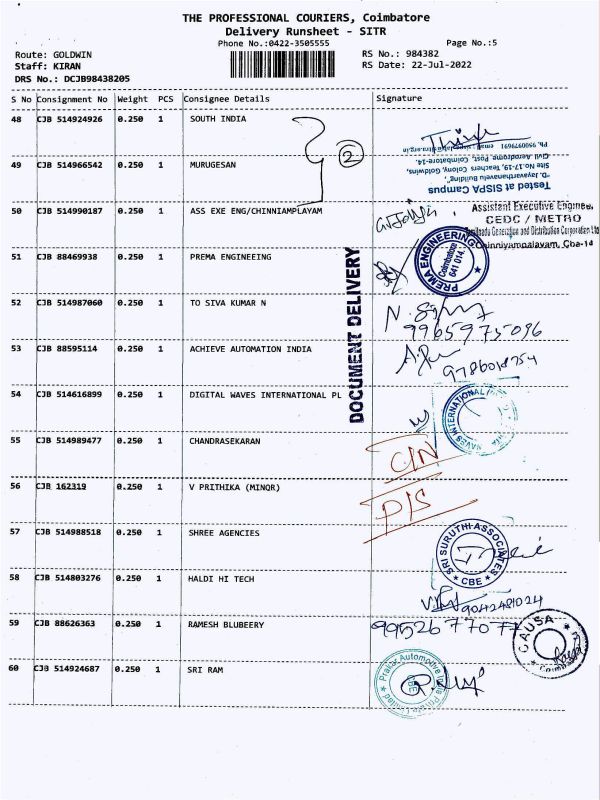 THE PROFESSIONAL COURIERS, Coimbatore
Delivery Runsheet - SITR
Phone No.:0422-3505555
Page No.:5
Route: GOLDWIN
RS No.: 984382
Staff: KIRAN
RS Date: 22-Jul-2022
DRS No.: DCJB98438205
S No Consignment No Weight PCS Consignee Details Signature
48 CJB 514924926 0.250 1 SOUTH INDIA
2
Ph. 9500979691
Civil Aerodrome Post, Coimbatore-14.
Site No.17-19, Teachers Colony, Goldwins,
Tested at SISPA Campus
49 CJB 514966542 0.250 1 MURUGESAN
50 CJB 514990187 0.250 1 ASS EXE ENG/CHINNIAMPLAYAM
Assistant Executive Engineer
CEDC / METRO
Generation and Distribution Corporation Ltd
Chinniyampalayam, Cba-14
51 CJB 88469938 0.250 1 PREMA ENGINEEING
PREMA ENGINEERING
Coimbatore
641 014.
DOCUMENT DELIVERY
52 CJB 514987060 0.250 1 TO SIVA KUMAR N
9965975096
53 CJB 88595114 0.250 1 ACHIEVE AUTOMATION INDIA
54 CJB 514616899 0.250 1 DIGITAL WAVES INTERNATIONAL PL
WAVES INTERNATIONAL
55 CJB 514989477 0.250 1 CHANDRASEKARAN
C/N
56 CJB 162319 0.250 1 V PRITHIKA (MINOR)
D/S
57 CJB 514988518 0.250 1 SHREE AGENCIES
SRI SURUTHI ASSOCIATES
CBE
58 CJB 514803276 0.250 1 HALDI HI TECH
9042481024
59 CJB 88626363 0.250 1 RAMESH BLUBEERY
CAUSA
60 CJB 514924687 0.250 1 SRI RAM
Prakar Automotive India Private Limited